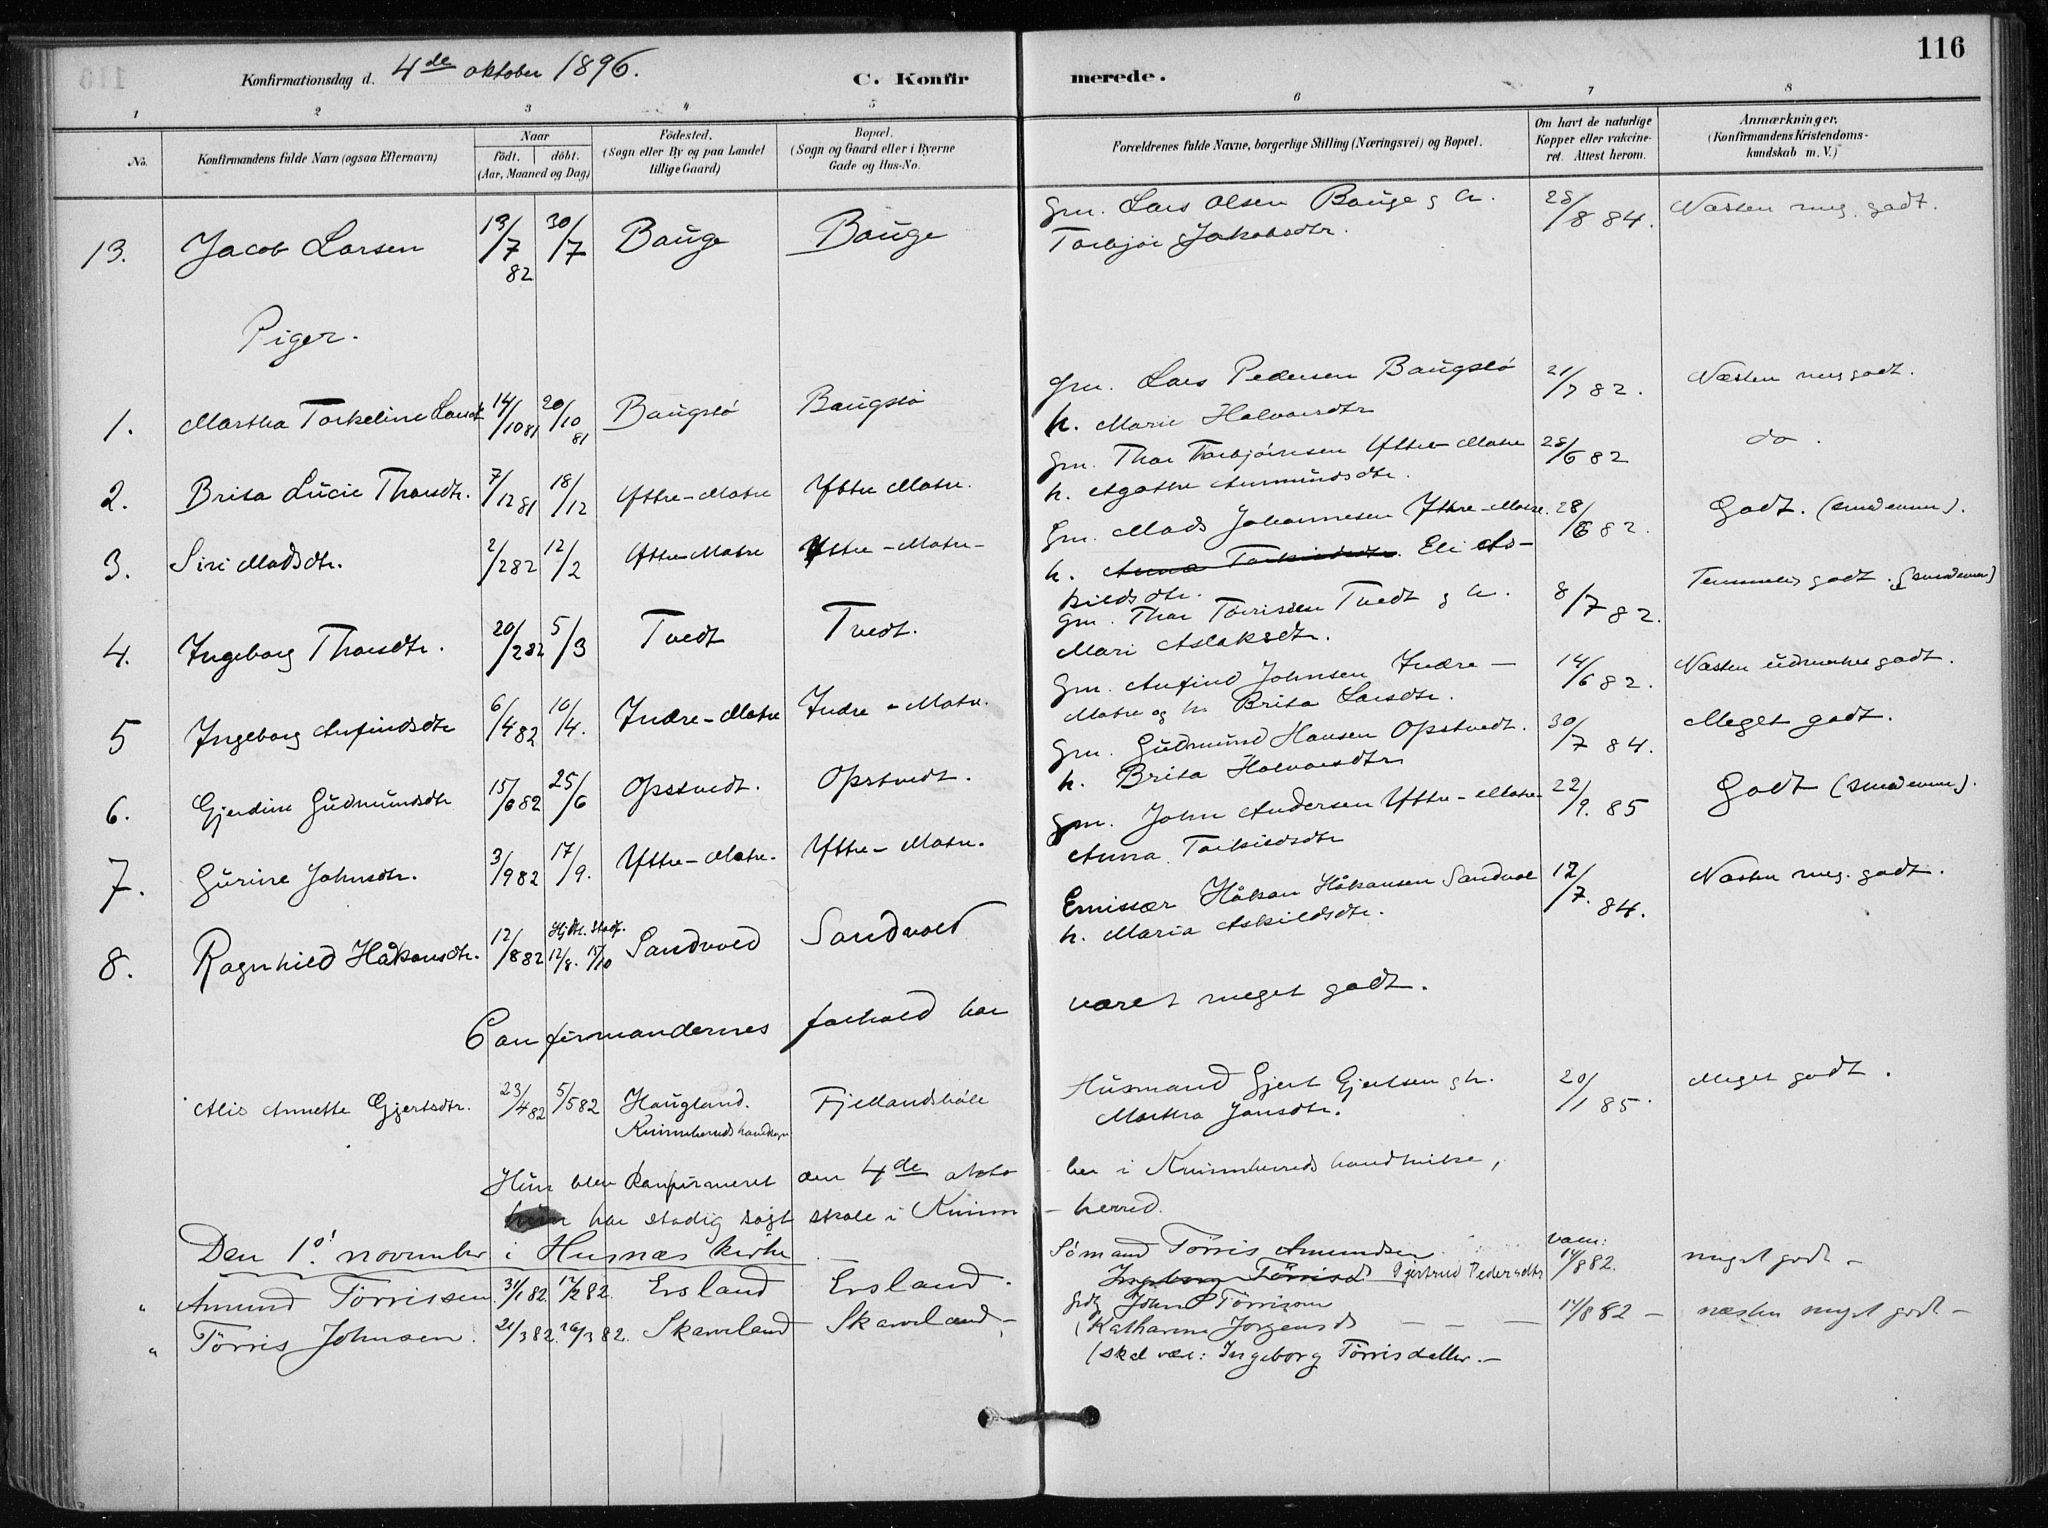 116
Konfirmationsdag d. 4de oktober 1896. C. Konfirmerede.
1 2 3 4 5 6 7 8
No. Konfirmandens fulde Navn (ogsaa Efternavn) Naar födt. döbt. (Aar, Maaned og Dag) Födested. (Sogn eller By og paa Landet tillige Gaard) Bopæl. (Sogn og Gaard eller i Byerne Gade og Hus-No. Forældrenes fulde Navne, borgerlige Stilling (Næringsvei) og Bopæl. Om havt de naturlige Kopper eller vakcineret. Attest herom. Anmærkninger. (Konfirmandens Kristendomskundskab m. V.)
13. Jacob Larsen 13/7 82 30/7 Bauge Bauge Gm. Lars Olsen Bauge g h. 28/8 84. Næsten meg. godt.
Torbjør Jakobsdtr.
Piger.
1. Martha Torkeline Larsdt 14/10 81 20/10 81 Baugslö Baugslö Gm. Lars Pedersen Baugslö 21/7 82. Næsten meg godt.
h. Marie Halvorsdtr
2. Brita Lucie Thorsdtr. 7/12 81 18/12 Yttre-Matre Yttre Matre. Gm. Thor Torbjörnsen Yttre-Matre 28/6 82 do.
h. Agathe Ammundsdtr.
3. Siri Madsdtr. 2/2 82 12/2 Yttre-Matre Yttre-Matre- Gm. Mads Johannesen Yttre-Matre. 28/6 82. Godt. (smd emm).
h. Anna Torkildsdtr. Eli As-
kildsdtr.
4. Ingeborg Thorsdtr. 20/2 82 5/3 Tvedt Tvedt. Gm. Thor Törrisen Tvedt g h. 8/7 82. Temmelig godt.
Mari Aslaksdtr.
5 Ingeborg Anfindsdtr 6/4 82 10/4. Indre-Matre Indre-Matre. Gm. Anfind Johnsen Indre- 14/6 82. Næsten udmerket godt.
Matre og h. Brita Larsdtr.
6. Gjerdine Gudmundsdtr 15/6 82 25/6 Opstvedt. Opstvedt. Gm. Gudmund Hansen Opstvedt. 30/7 84. Meget godt.
h. Brita Halvorsdtr
7. Gurine Johnsdtr. 3/9 82 17/9. Yttre-Matre. Yttre-Matre. Gm. John Andersen Yttre-Matre- 22/9. 85 Godt
Anna Torkildsdtr
8. Ragnhild Håkonsdtr. 12/8 82 Hjdb. Stadf. 12/8. 15/10 Sandvold Sandvold Emissær Håkon Håkonsen Sandvol 12/7. 84. Næsten meg. godt.
h. Maria Askildsdtr.
Confirmandernes forhold har været meget godt.
Alis Annette Gjertsdtr. 23/4 82 5/5 82 Haugland. Kvinnherreds hovedsogn Fjellandsböle Husmand Gjert Gjertsen g h. 20/1 85. Meget godt.
Martha Jonsdtr.
Hun blev konfirmeret den 4de oktober i Kvinnherreds hovedkirke,
hun har stadig søgt skole i Kvinn-herred.
Den 1ste november i Husnæs kirke
" Amund Törrissen 31/1 82. 12/2 82. Ersland Ersland. Sömand Törris Amundsen vacc: 14/8 82. meget godt -
Ingeborg Törrisd Gjertrud Pedersdtr
" Törris Johnsen. 21/3 82. 26/3 82. Skaveland Skaveland,- Grdb John Törrison 14/8 82 - næsten meget godt -
(Katharine Jorgensd - - -
(skal være: Ingeborg Törrisdatter.-